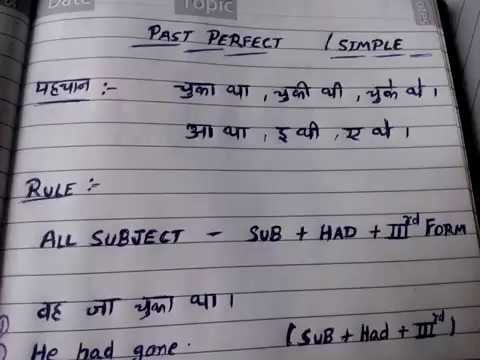 Date Topic
PAST PERFECT / SIMPLE
पहचान :- चुका था , चुकी थी , चुके थे ।
आ था , इ थी , ए थे ।
RULE :-
ALL SUBJECT - SUB + HAD + IIIrd FORM
वह जा चुका था ।
He had gone. (SUB + Had + IIIrd)